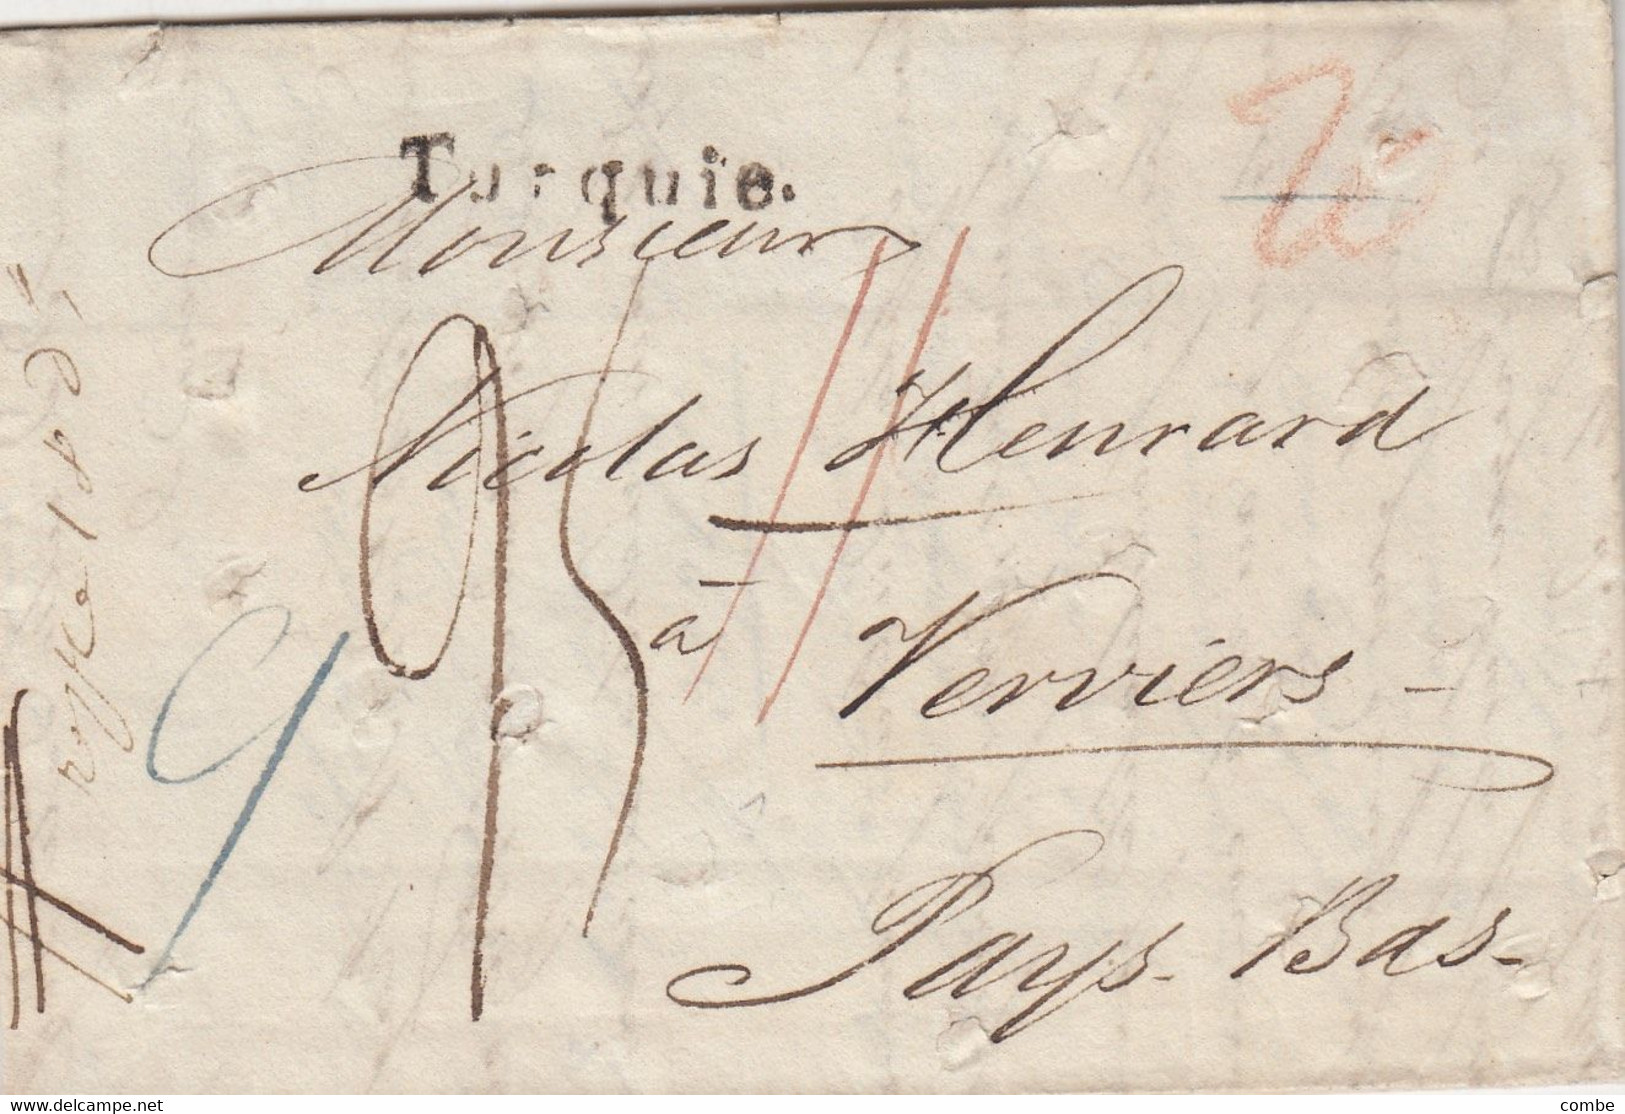 Turquie.
Monsieur
Nicolas Henrard
à
Verviers -
Pays-Bas-
95
9
www.delcampe.net
combe